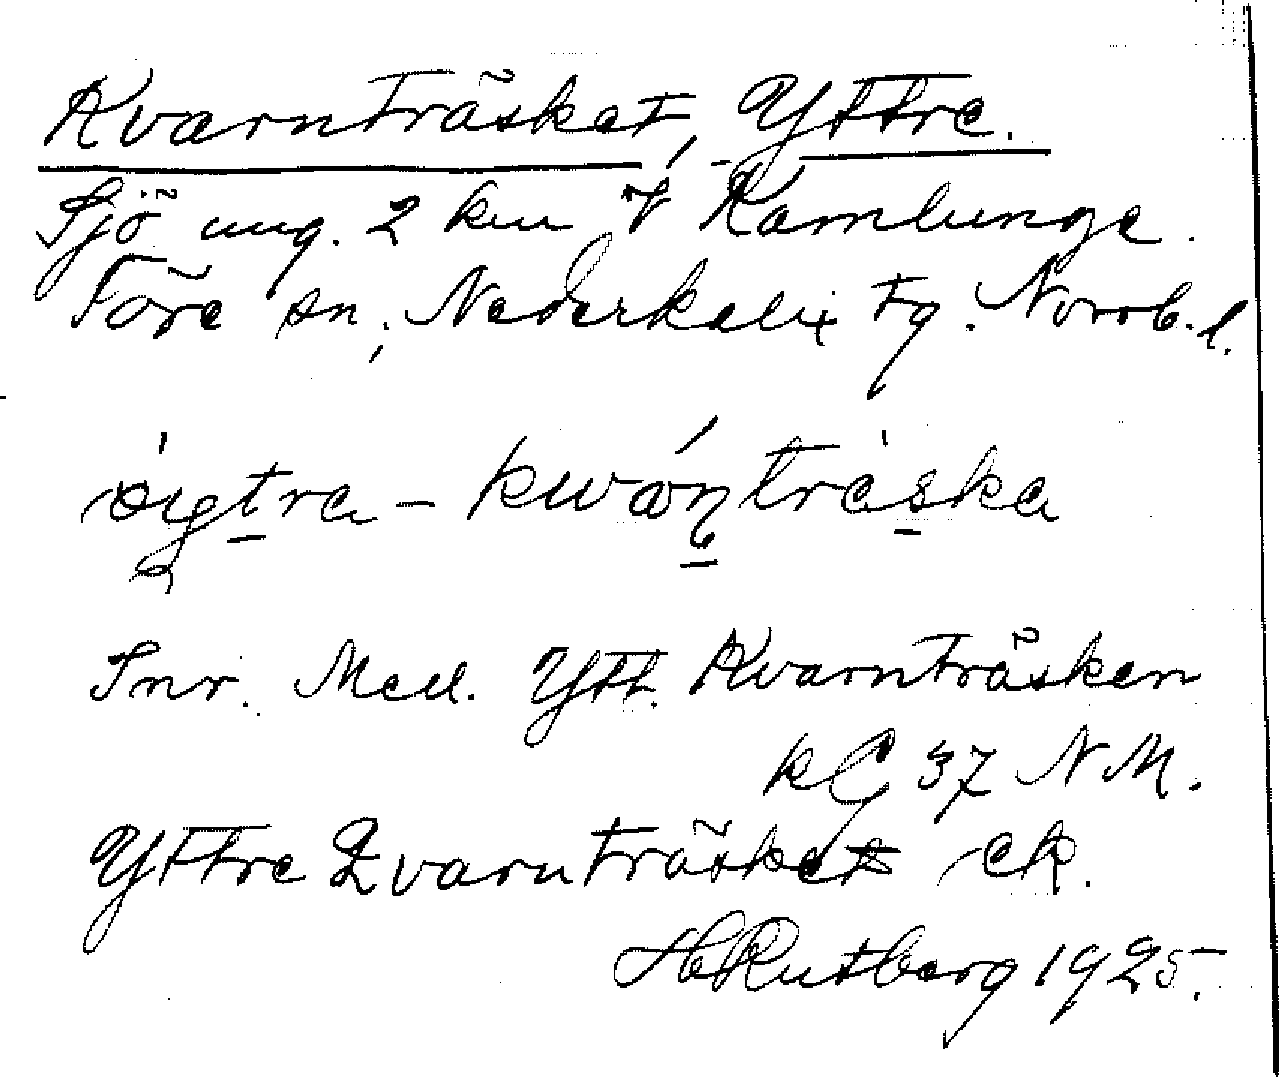 Kvarnträsket, Yttre.
Sjö ung. 2 km V Kamlunge.
Töre sn, Nederkalix tg. Norrb. l.
kwánträska
Inr. Mell. Ytt. Kvarnträsken
kG 37 N M.
Yttre Qvarnträsket ek.
H Rutberg 1925.